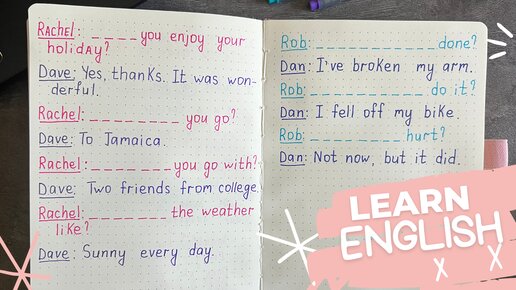 Rachel: _ _ _ _ you enjoy your
holiday?
Dave: Yes, thanks. It was won-
derful.
Rachel: _ _ _ _ _ _ _ you go?
Dave: To Jamaica.
Rachel: _ _ _ _ _ _ _ you go with?
Dave: Two friends from college.
Rachel: _ _ _ _ _ _ _ the weather
like?
Dave: Sunny every day.
Rob: _ _ _ _ _ _ _ _ _ _ _ done?
Dan: I've broken my arm.
Rob: _ _ _ _ _ _ _ _ _ _ do it?
Dan: I fell off my bike.
Rob: _ _ _ _ _ _ _ _ hurt?
Dan: Not now, but it did.
LEARN
ENGLISH